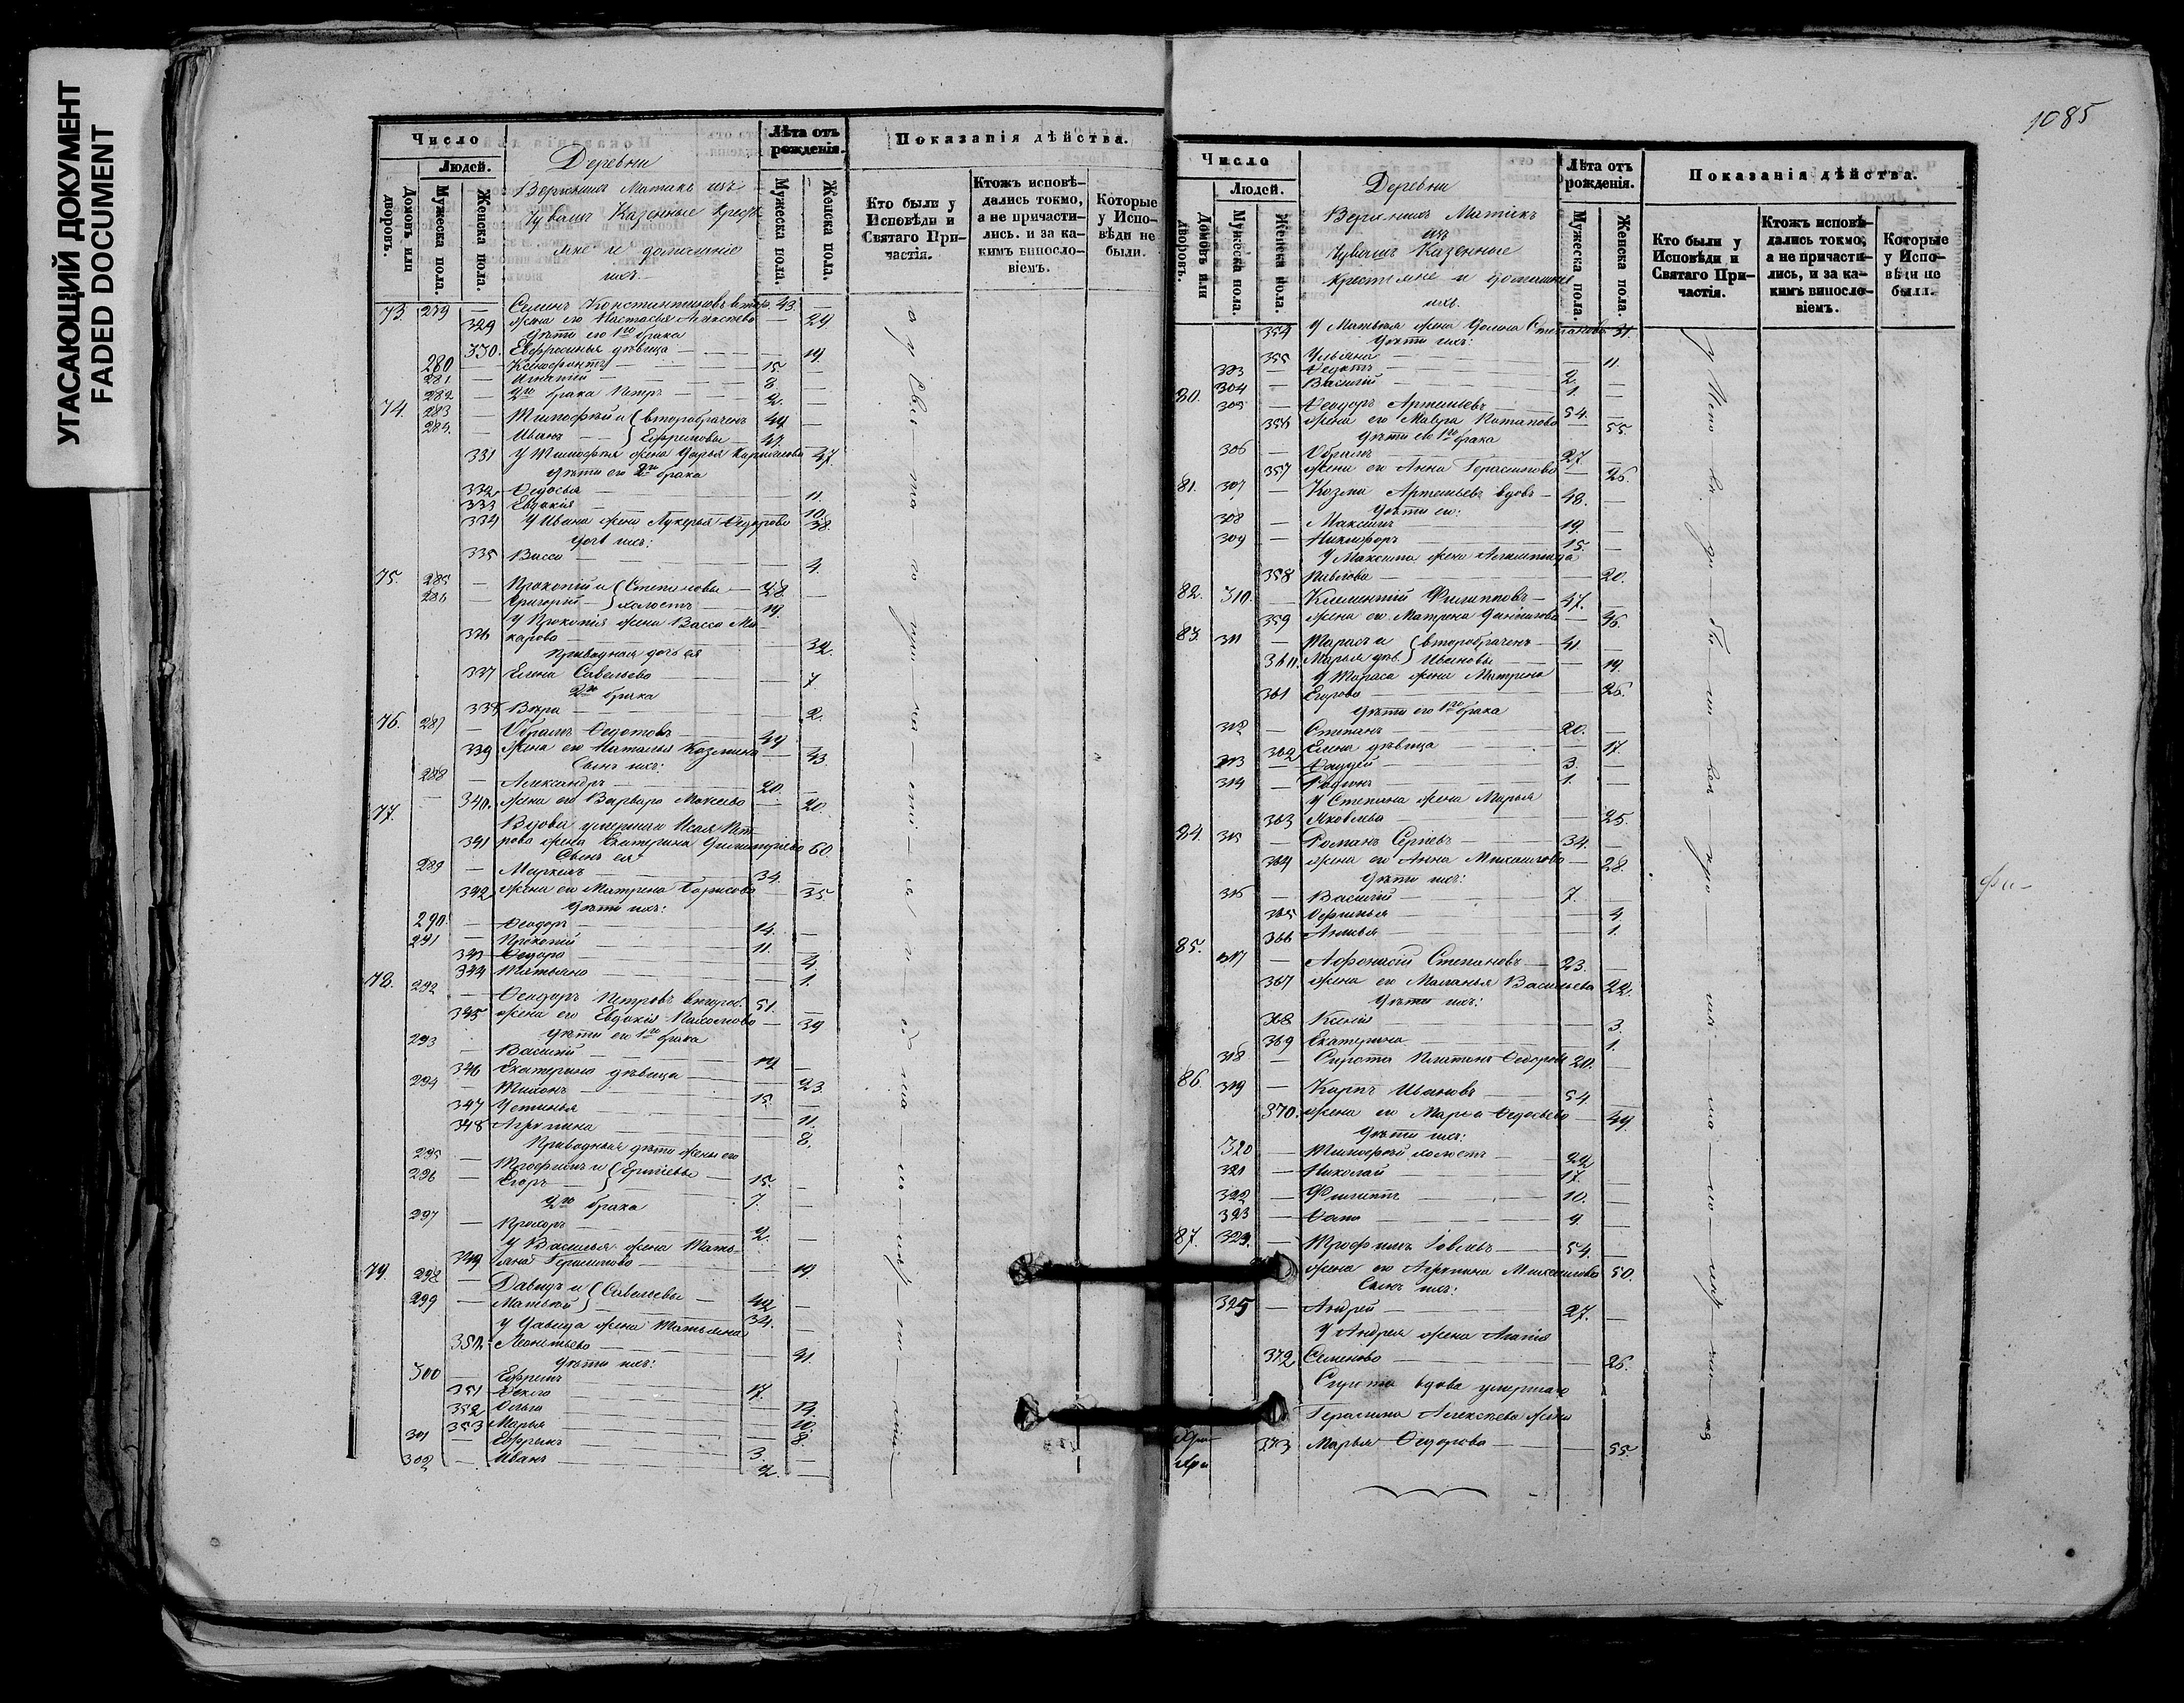 УГАСАЮЩИЙ ДОКУМЕНТ
FADED DOCUMENT
Число
Людей.
Домовъ или дворовъ.
Мужеска пола.
Женска пола.
Деревни
Верхнихъ Матакъ изъ
Чувашъ Казенные крест
яне и домашніе
ихъ.
Лѣта отъ рожденія.
Мужеска пола.
Женска пола.
Показанія дѣйства.
Кто были у Исповѣди и Святаго При-частія.
Ктожъ исповѣ-дались токмо, а не причасти-лись. и за ка-кимъ винослo-віемъ.
Которые у Испо-вѣди не были.
73. 279 — Семенъ Константиновъ втор. 43. —
329 жена его Настасья Алексѣева — 29
дѣти его 1го брака
330. Евфросинья дѣвица — 19.
280 — Ксенофонтъ — 15. —
281 — Игнатій — 8. —
282 — 2го брака Петръ — 2. —
74. 283 — Тимофей и второбраченъ 49 —
284. — Иванъ — Ефремовы — 41. —
331 У Тимофея жена Дарья 47.
дѣти его 2го брака
332 Ѳедосья — 11.
333 Евдокія — 10.
334 У Ивана жена Лукерья Ѳедорова 38.
дочь ихъ:
335 Васса — 4.
75. 285 — Прокопій и Степановы — 28. —
286 — Григорій — холостъ — 19.
У Прокопія жена Васса Ма-
336 карова — 32.
Приводная дочь ея
337 Елена Савельева — 7.
2го брака
338 Вѣра — 2.
76. 287 — Абрамъ Ѳедотовъ — 49
339 жена его Наталья Козмина — 43.
Сынъ ихъ:
288 — Александръ — 20. —
340. жена его Варвара Мокеева — 20.
77. Вдова умершаго Исая Пет-
341 рова жена Екатерина Григорьева 60.
Сынъ ея
289 — Маркелъ — 34. —
342 жена его Матрена Борисова — 35.
Дѣти ихъ:
290. — Ѳеодоръ — 14. —
291 — Прокопій — 11. —
343 Ѳедора — 4.
344 Татьяна — 1.
78. 292 — Ѳеодоръ Петровъ второб. 51. —
345 жена его Евдокія Пахомова — 39
дѣти его 1го брака
293 — Василій — 19 —
346 Екатерина дѣвица — 23.
294 — Тихонъ — 15.
347 Устинья — 11.
348 Агрипина — 8.
Приводныя дѣти жены его
295 — Трофимъ и Ергіевы — 15. —
296 — Егоръ — 7. —
2го брака
297 — Прохоръ — 2. —
У Василья жена Тать-
349 яна Герасимова — 19.
79. 298 — Давыдъ и Савельевы — 42 —
299 — Матвей — 34. —
У Давыда жена Татьяна
350. Леонтьева — 41.
дѣти ихъ:
300 — Ефремъ — 17.
351 Ѳекла — 13.
352 Ольга — 10.
353 Марья — 8.
301 — Ефремъ — 3. —
302 — Иванъ — 2. —
1085
Число
Людей.
Домовъ или дворовъ.
Мужеска пола.
Женска пола.
Деревни
Верхнихъ Матакъ
изъ
Чувашъ Казенные
Крестьяне и домашніе
ихъ.
Лѣта отъ рожденія.
Мужеска пола.
Женска пола.
Показанія дѣйства.
Кто были у Исповѣди и Святаго При-частія.
Ктожъ исповѣ-дались токмо, а не причасти-лись, и за ка-кимъ винослo-віемъ.
Которые у Испо-вѣди не были.
354 У Матвея жена Домна Степанова 31.
Дѣти ихъ:
355 Ульяна — 11.
303 — Ѳедотъ — 2. —
304 — Василій — 1. —
80. 305 — Ѳеодоръ Артемьевъ — 54. —
356 жена его Мавра Потапова — 55.
Дѣти его 1го брака
306 — Абрамъ — 27. —
357 жена его Анна Герасимова — 26.
81. 307 — Козма Артемьевъ вдовъ — 48. —
Дѣти его:
308 — Максимъ — 19 —
309 — Никифоръ — 15. —
У Максима жена
358 Павлова — 20.
82. 310. — Климентій Филипповъ — 47. —
359 жена его Матрена — 46.
83. 311 — Тарасъ и второбраченъ — 41. —
360. Марья дѣв. Ивановы — 19.
У Тараса жена Матрена
361 Егорова — 26.
Дѣти его 1го брака
312 — Степанъ — 20. —
362 Елена дѣвица — 17.
313 — Ѳаддей — 3. —
314 — Родіонъ — 1. —
У Степана жена Марья
363 Яковлева — 25.
84. 315 — Романъ Сергѣевъ — 34. —
364 жена его Анна Михайлова — 28.
Дѣти ихъ:
316 — Василій — 7. —
365 Офимья — 4.
366 Анисья — 1.
85. 317 — Афонасій Степановъ — 23. —
367 жена его Маланья Васильева 22.
Дѣти ихъ:
368 Ксенія — 3.
369 Екатерина — 1.
318 — Сирота Платонъ Ѳедоровъ 20. —
86. 319 — Карпъ Ивановъ — 54 —
370. жена его Марѳа Ѳедосѣева — 49.
Дѣти ихъ:
320 — Тимофей холостъ — 22 —
321 — Николай — 17. —
322 — Филиппъ — 10. —
323 — Ѳома — 4. —
87. 324. — Трофимъ Іовлевъ — 54. —
жена его Агрипина Михайлова 50.
Сынъ ихъ:
325 — Андрей — 27. —
У Андрея жена Агапія
372 Семенова — 26.
Сирота вдова умершаго
Герасима Алексѣева жена
373 Марья Ѳедорова — 55.